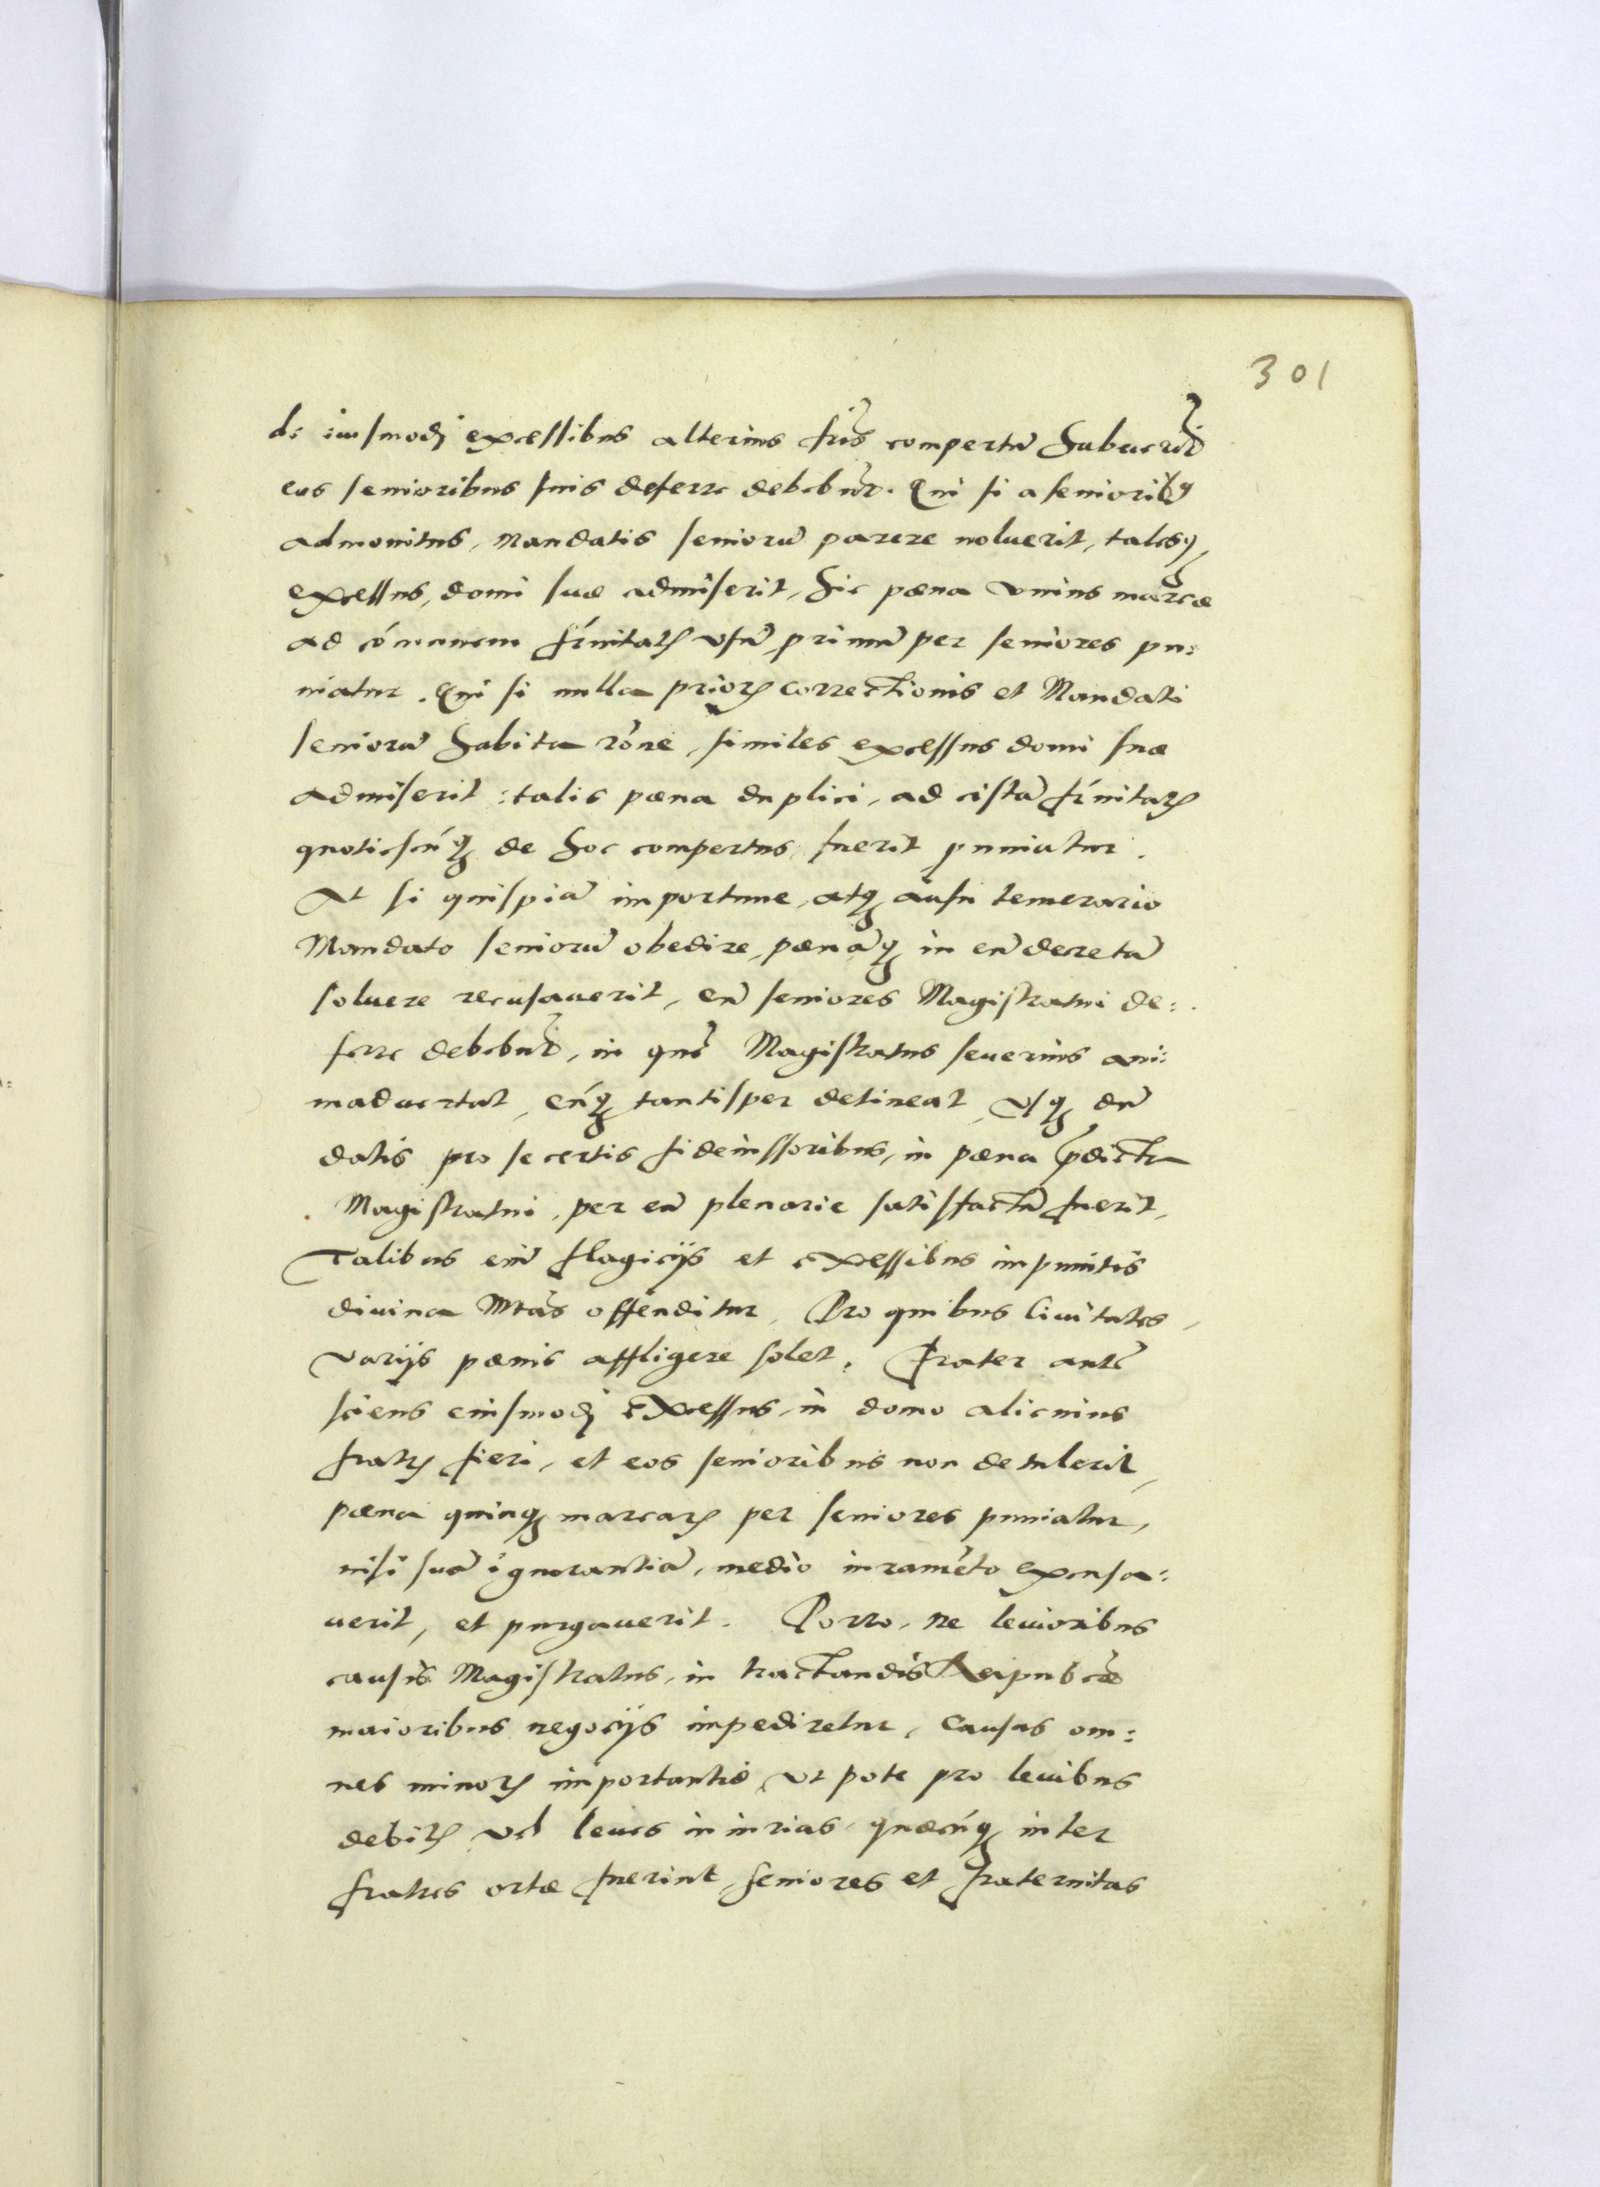 301
de eiusmodj excessibus alterius fris̃ compertũ habuerint
eos senioribus suis deferre debebũt. Qui si a seniorib9
admonitus, Mandatis seniorũ parere noluerit, talesq3
excessus, domi suæ admiserit, hic pæna vnius marcæ
ad cõmunem frnitatis vsũ, primũ per seniores pu:
niatur. Qui si nulla prioris correctionis et Mandati
seniorũ habita rõne, similes excessus domi suæ
admiserit: talis pæna duplici, ad cistã frnitatis
quotiescũq3 de hoc compertus fuerit puniatur.
At si quispiã importune, atq3 ausu temerario
Mandato seniorũ obedire, pænãq3 in eũ decretã
soluere recusauerit, eũ seniores Magistratui de:
ferre debebũt, in quẽ Magistratus seuerius ani:
maduertat, eũq3 tantisper detineat, vsq3 dũ
datis pro se certis fideiussoribus, in pæna p̃dicta
Magistratui, per eũ plenarie satisfactũ fuerit,
Talibus eni̅ flagicijs et excessibus impunitis
diuina Mtas̃ offenditur, Pro quibus Ciuitates,
varijs pænis affligere solet. Frater autẽ
sciens eiusmodj excessus, in domo alicuius
fratris fieri, et eos senioribus non detulerit,
pæna quinq3 marcarũ per seniores puniatur,
nisi suã ignorantiã, medio iuramẽto excusa:
uerit, et purgauerit. Porro, ne leuioribus
causis Magistratus, in tractandis Reipubcæ̃
maioribus negocijs impediretur, Causas om:
nes minoris importantiæ, vt pote pro leuibus
debitis vel leues iniurias, quæcũq3 inter
fratres ortæ fuerint, seniores et fraternitas